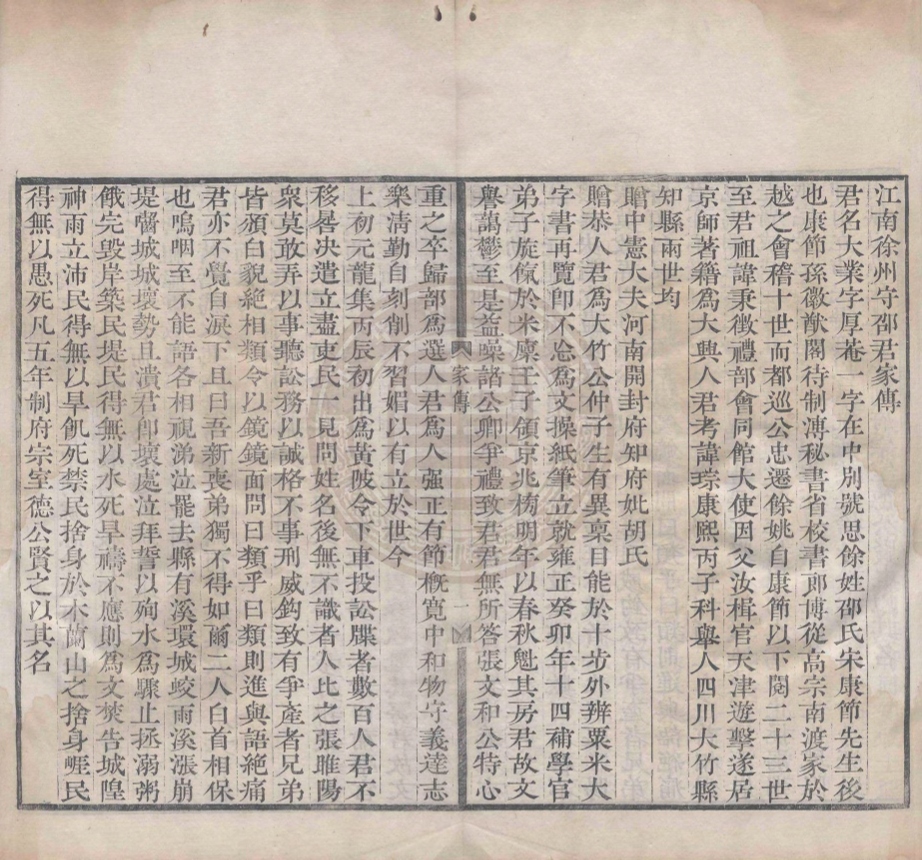 江南徐州守邵君家傳
君名大業字厚菴一字在中別號思餘姓邵氏宋康節先生後
也康節孫徽猷閣待制溥秘書省校書郎博從高宗南渡家於
越之會稽十世而都巡公忠遷餘姚自康節以下閱二十三世
至君祖諱秉徵禮部會同館大使因父汝楫官天津遊擊遂居
京師著籍爲大興人君考諱琮康熙丙子科舉人四川大竹縣
知縣兩世均
贈中憲大夫河南開封府知府妣胡氏
贈恭人君爲大竹公仲子生有異稟目能於十步外辨粟米大
字書再覽卽不忘爲文操紙筆立就雍正癸卯年十四補學官
弟子旋餼於米廩壬子領京兆榜明年以春秋魁其房君故文
譽藹鬱至是益噪諸公卿爭禮致君君無所答張文和公特心
家傳
一
重之卒歸部爲選人君爲人强正有節概寬中和物守義達志
樂淸勤自刻削不習媚以有立於世今
上初元龍集丙辰初出爲黃陂令下車投訟牒者數百人君不
移晷决遣立盡吏民一見問姓名後無不識者人比之張睢陽
衆莫敢弄以事聽訟務以誠格不事刑威鈎致有爭產者兄弟
皆頒白貌絶相類令以鏡鏡面問曰類乎曰類則進與語絶痛
君亦不覺自淚下且曰吾新喪弟獨不得如爾二人白首相保
也嗚咽至不能語各相視涕泣罷去縣有溪環城蛟雨溪漲崩
堤齧城城壞勢且潰君卽壞處泣拜誓以殉水爲驟止拯溺粥
餓完毀岸築民堤民得無以水死旱禱不應則爲文焚告城隍
神雨立沛民得無以旱飢死禁民捨身於木蘭山之捨身崕民
得無以愚死凡五年制府宗室德公賢之以其名